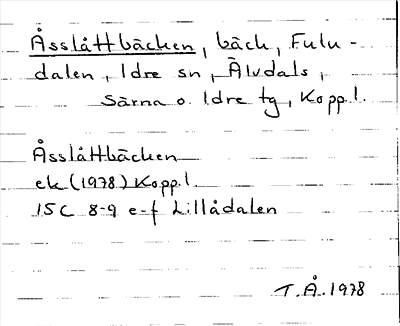 Åsslåttbäcken, bäck, Fulu-
dalen, Idre sn, Älvdals,
Särna o. Idre tg, Kopp.l.
Åsslåttbäcken
ek (1978) Kopp.l.
15C 8-9 e-f Lillådalen
T.Å. 1978